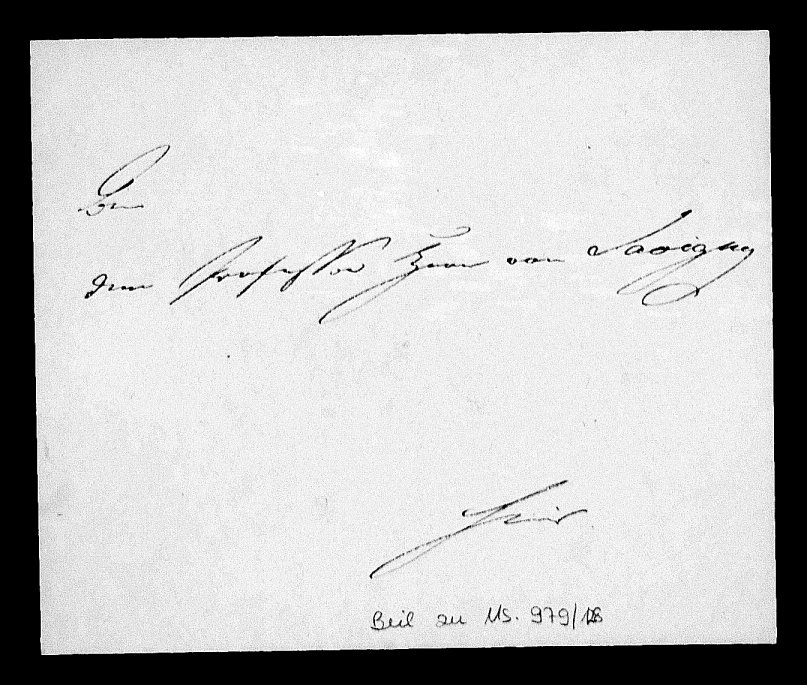 dem Professor Herrn von Savigny
hier
Beil zu Ms. 979/128